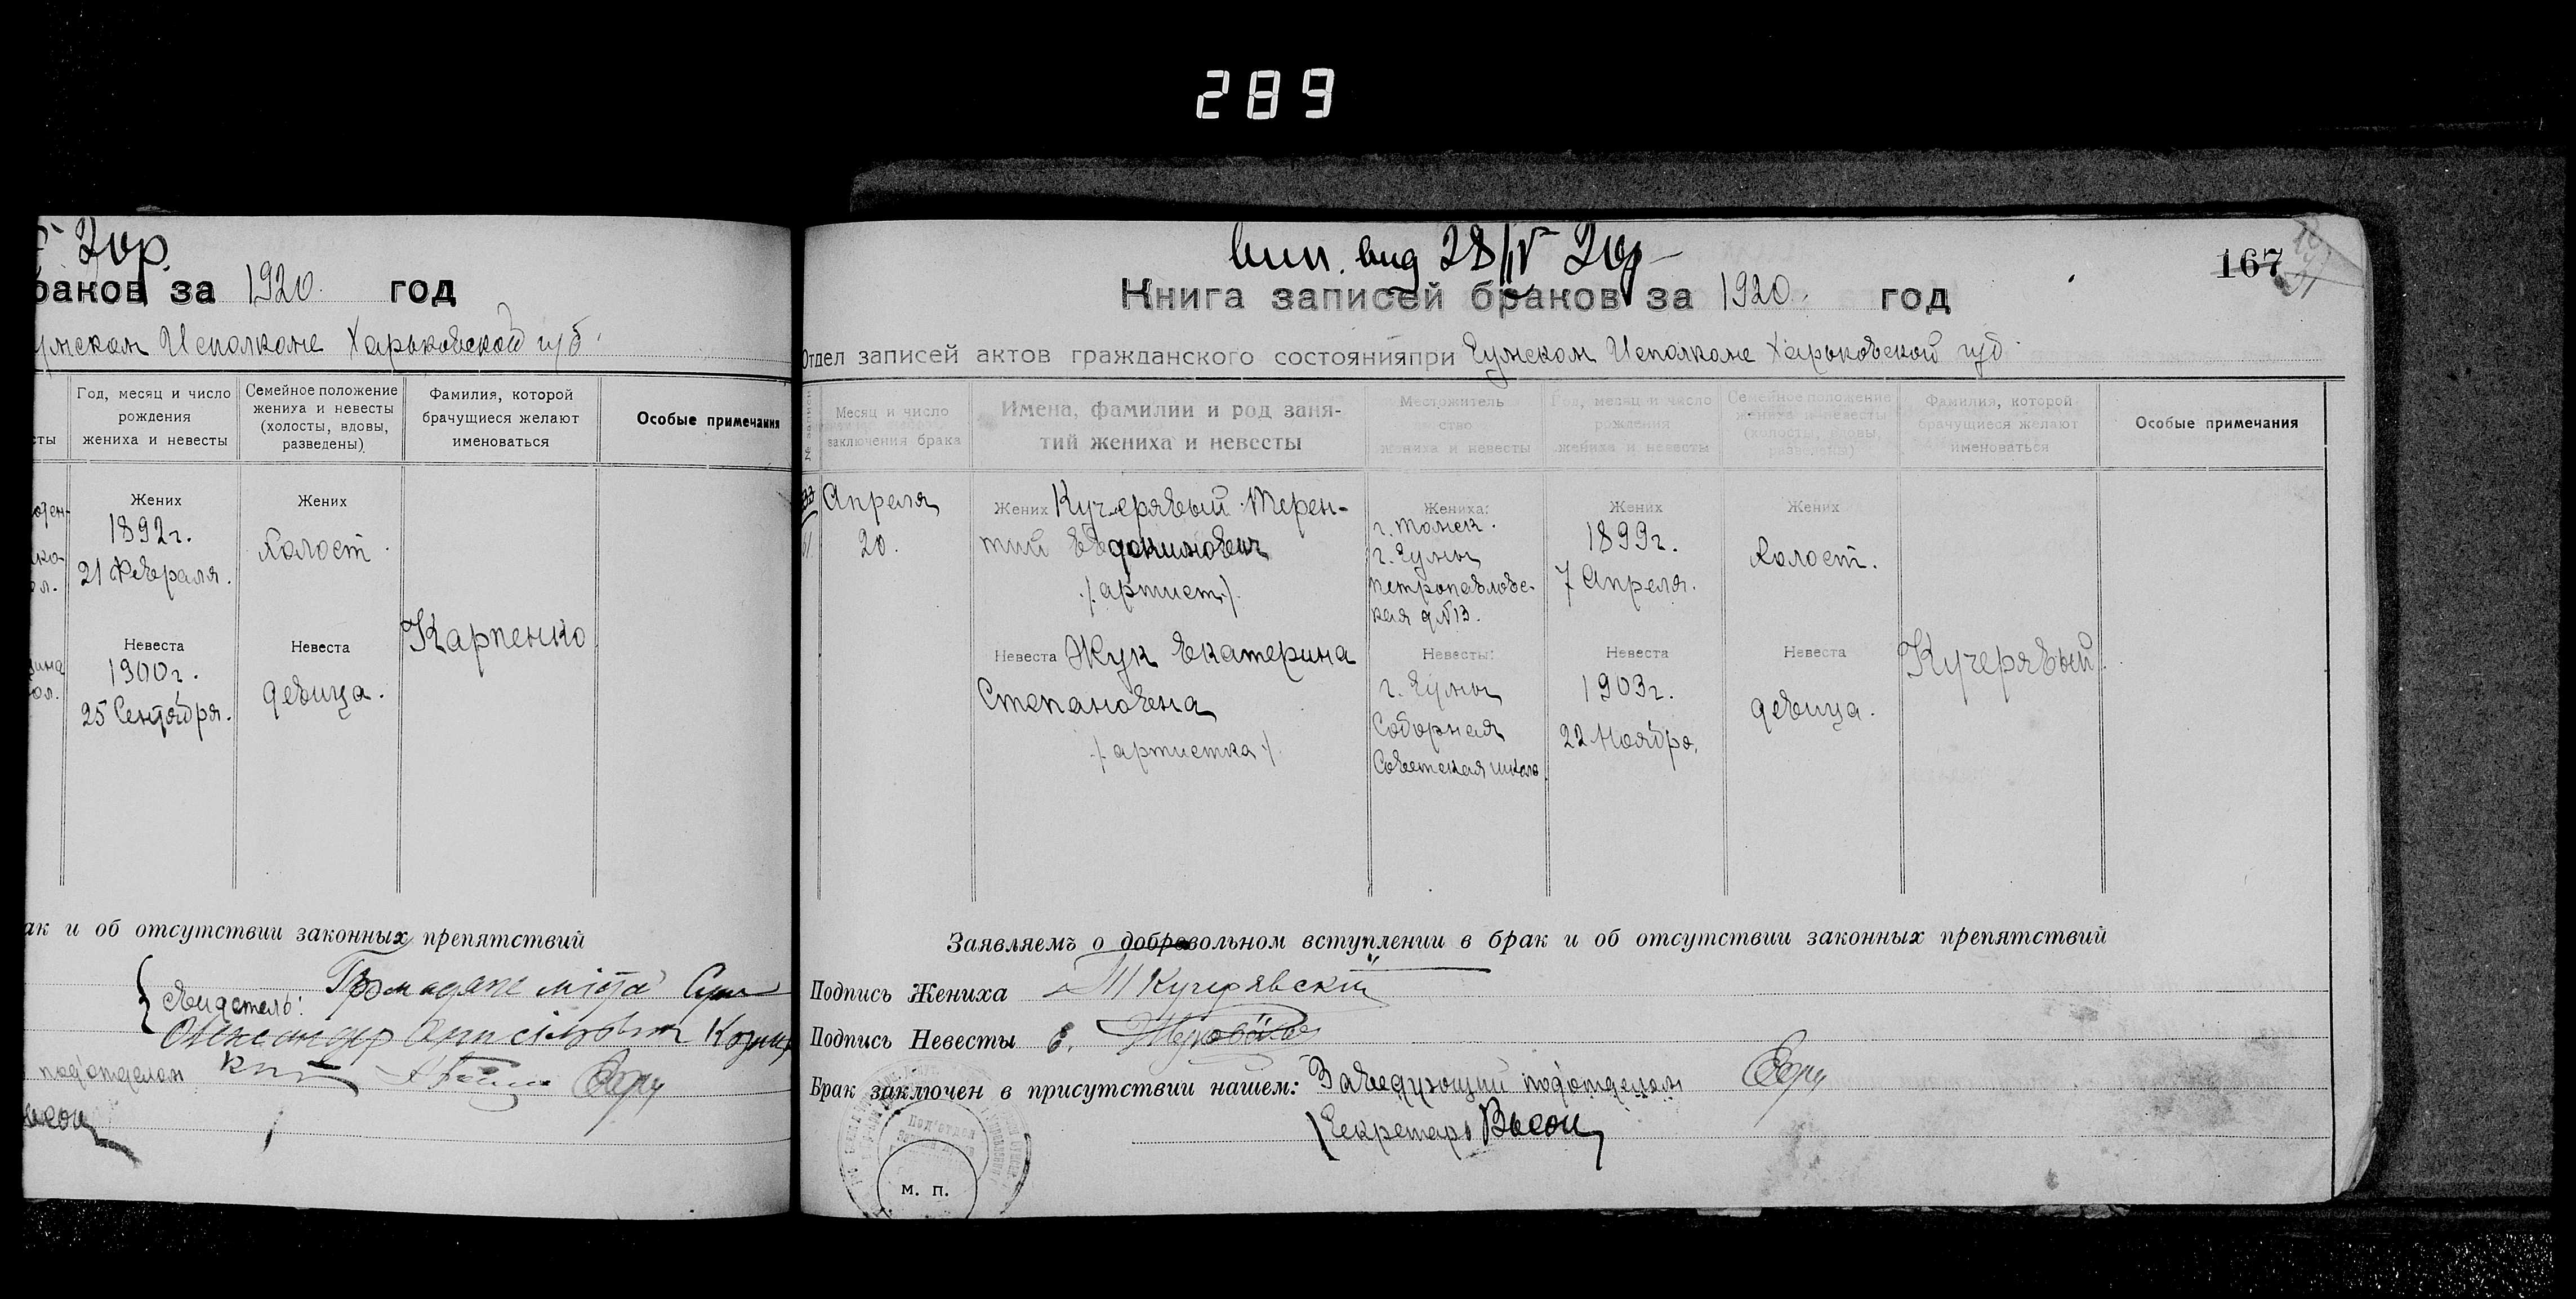 289
20р.
браков за 1920. год
умском Исполкоме Харьковской губ.
Год, месяц и число рождения жениха и невесты
Семейное положение жениха и невесты (холосты, вдовы, разведены)
Фамилия, которой брачущиеся желают именоваться
Особые примечания
Жених
1892г.
21 Февраля.
Жених
Холост
Невеста
1900г.
25 Сентября.
Невеста
девица.
Карпенко
ак и об отсутствии законных препятствий
Свидетель: Громадяне міста Суми
подотделом
вип. вид 28/IV 20р
167
Книга записей браков за 1920. год
Отдел записей актов гражданского состояния при Сумском Исполкоме Харьковской губ.
№ записи
Месяц и число заключения брака
Имена, фамилии и род заня-
тий жениха и невесты
Местожитель
ство
жениха и невесты
Год, месяц и число
рождения
жениха и невесты
Семейное положение
жениха и невесты
(холосты, вдовы,
разведены)
Фамилия, которой
брачущиеся желают
именоваться
Особые примечания
Апреля
20.
Жених Кучерявый Терен-
тий Евдокимович
/артист/
Жениха:
г. Томск.
г. Сумы
Петропавловс-
кая д№13.
Жених
1899г.
7 Апреля.
Жених
Холост.
Невеста Жук Екатерина
Степановна
/артистка/
Невесты:
г. Сумы
Соборная
Советская школа
Невеста
1903г.
22 Ноября.
Невеста
девица.
Кучерявый
Заявляемъ о добровольном вступлении в брак и об отсутствии законных препятствий
Подпись Жениха Т Кучерявский
Подпись Невесты Е.
Брак заключен в присутствии нашем: Заведующий подотделом
Секретарь
м. п.